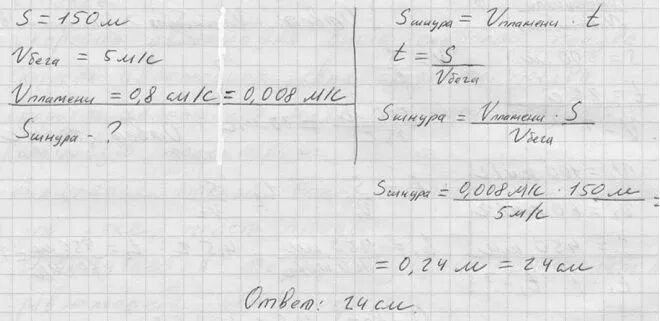 S = 150м
Vбега = 5м/с
Vпламени = 0,8 см/с = 0,008 м/с
Sшнура - ?
Sшнура = Vпламени · t
t = S / Vбега
Sшнура = Vпламени · S / Vбега
Sшнура = 0,008м/с · 150м / 5м/с =
= 0,24м = 24см
Ответ: 24см.